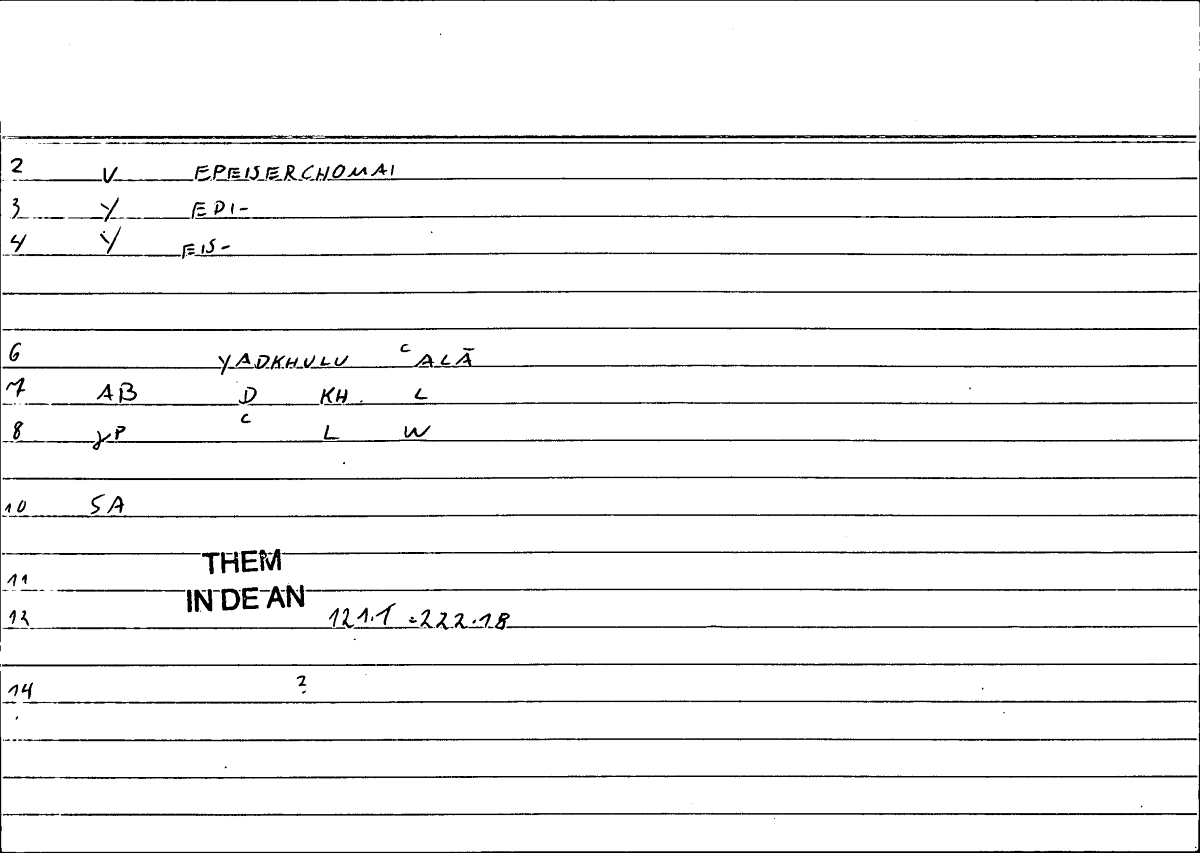 2 V EPEISERCHOMAI
3 Y EPI-
4 Y EIS-
6 YADKHULU ᶜALĀ
7 AB D KH L
8 γP ᶜ L W
10 SA
THEM
11
IN DE AN
12 121.1 = 222.18
14 ?